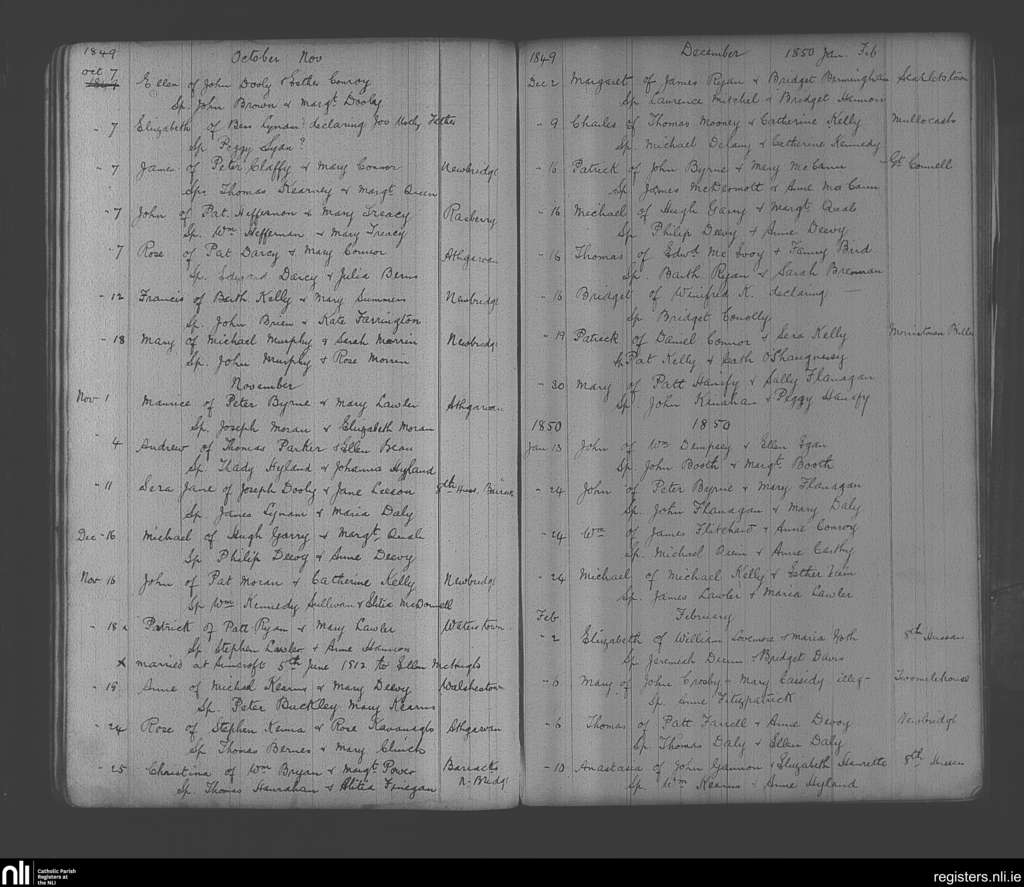 1849 October Nov
Oct 7 Ellen of John Dooly & Esther Conroy
Sp. John Brown & Margt. Dooly
- 7 Elizabeth of Ben Lynam? declaring Jos Father
Sp Peggy Lyan?
- 7 James of Peter Claffy & Mary Connor Newbridge
Sps Thomas Kearney & Margt Quin
- 7 John of Pat. Heffernon & Mary Treacy Rasberry
Sp. Wm Heffernan & Mary Treacy
- 7 Rose of Pat Darcy & Mary Connor Athgarvan
Sp. Edward Darcy & Julia Berns
- 12 Francis of Barth. Kelly & Mary Summers Newbridge
Sp. John Brien & Kate Farrington
- 18 Mary of Michael Murphy & Sarah Morrin Newbridge
Sp. John Murphy & Rose Morrin
November
Nov 1 Maurice of Peter Byrne & Mary Lawler Athgarvan
Sp. Joseph Moran & Elizabeth Moran
- 4 Andrew of Thomas Parker & Ellen Bean
Sp. Thady Hyland & Johanna Hyland
- 11 Sera Jane of Joseph Dooly & Jane Leeson 8th Huss.
Sp. James Lynam & Maria Daly
Dec - 16 Michael of Hugh Garry & Margt. Quale
Sp Philip Deevy & Anne Deevy
Nov 16 John of Pat Moran & Catherine Kelly Newbridge
Sp Wm Kennedy Sullivan & Elitia McDonnell
- 18 x Patrick of Patt Ryan & Mary Lawler Waterstown
Sp Stephen Lawler & Anne Hannon
x married at 5th June 1912 to Ellen McHugh
- 18 Anne of Michael Kearns & Mary Deevy Walshestown
Sp. Peter Buckley Mary Kearns
- 24 Rose of Stephen Kenna & Rose Kavanagh Athgarvan
Sp Thomas Bernes & Mary Clinch
- 25 Christina of Wm Bryan & Margt. Power Barracks
Sp. Thomas Hanrahan & Alitia Finegan N-Bridge
1849 December 1850 Jan. Feb
Dec 2 Margaret of James Ryan & Bridget Birmingham Scarletstown
Sp Laurence Mitchel & Bridget Hannon
- 9 Charles of Thomas Mooney & Catherine Kelly
Sp. Michael Delany & Catherine Kennedy
- 16 Patrick of John Byrne & Mary McCann Gt. Connell
Sp James McDermott & Anne McCann
- 16 Michael of Hugh Garry & Margt. Quale
Sp Philip Deevy & Anne Deevy
- 16 Thomas of Edwd. McEvoy & Fanny Bird
Sp. Barth Ryan & Sarah Brennan
- 16 Bridget of Winifred K. declaring —
Sp. Bridget Conolly
- 19 Patrick of Daniel Connor & Sera Kelly
Sp Pat Kelly & O'Shaugnessy
- 30 Mary of Patt Hanify & Sally Flanagan
Sp. John Kinahan & Peggy Hanify
1850 1850
Jan 13 John of Wm Dempsey & Ellen Egan
Sp John Booth & Margt. Booth
- 24 John of Peter Byrne & Mary Flanagan
Sp. John Flanagan & Mary Daly
- 24 Wm of James Flitchard & Anne Conroy
Sp. Michael Quin & Anne Carthy
- 24 Michael of Michael Kelly & Esther
Sp. James Lawler & Maria Lawler
Feb February
- 2 Elizabeth of William Lovemore & Maria 8th Hussar
Sp Jeremiah & Bridget Davis
- 6 Mary of John Crosby - Mary Cassidy illeg - Twomilehouse
Sp. Anne Fitzpatrick
- 6 Thomas of Patt Farrell & Anne Devoy Newbridge
Sp Thomas Daly & Ellen Daly
- 10 Anastasia of John Gannon & Elizabeth Hanrette 8th Hussar
Sp. Wm Kearns & Anne Hyland
nli Catholic Parish
Registers at
the NLI
registers.nli.ie